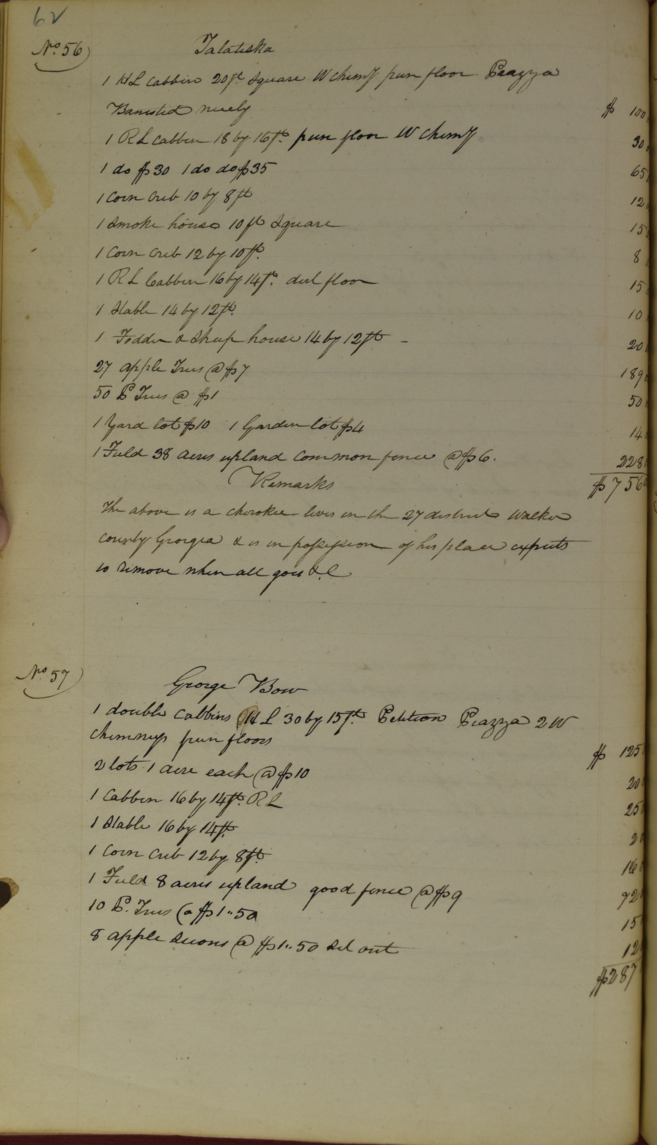 62
No. 56 Talatiska
1 H L Cabbin 20ft Square W Chimy pun floor Piazza
Banisted nicely $ 100
1 R L Cabbin 18 by 16ft. pun floor W Chimy 30
1 do $30 1 do do $35 65
1 Corn Crib 10 by 8ft 12
1 Smoke house 10ft Square 15
1 Corn Crib 12 by 10ft. 8
1 R L Cabbin 16 by 14ft. dirt floor 15
1 Stable 14 by 12ft. 10
1 Fodder & Sheep house 14 by 12ft - 20
27 apple Trees @ $7 189
50 P Trees @ $1 50
1 Yard lot $10 1 Garden lot $4 14
1 Field 38 acres upland common fence @ $6. 228
Remarks $756
The above is a cherokee lives in the 27 district Walker
county Georgia & is in possession of his place expects
to remove when all goes &.C
No. 57
George Bow
1 double Cabbins H L 30 by 15ft. Petition Piazza 2 W
chimneys pun floors $ 125
2 lots 1 acre each @ $10 20
1 Cabbin 16 by 14ft. R L 25
1 Stable 16 by 14ft 2
1 Corn Crib 12 by 8ft. 16
1 Field 8 acres upland good fence @ $9 72
10 P. Trees @ $1"50 15
8 apple Scions @ $1"50 Set out 12
$287